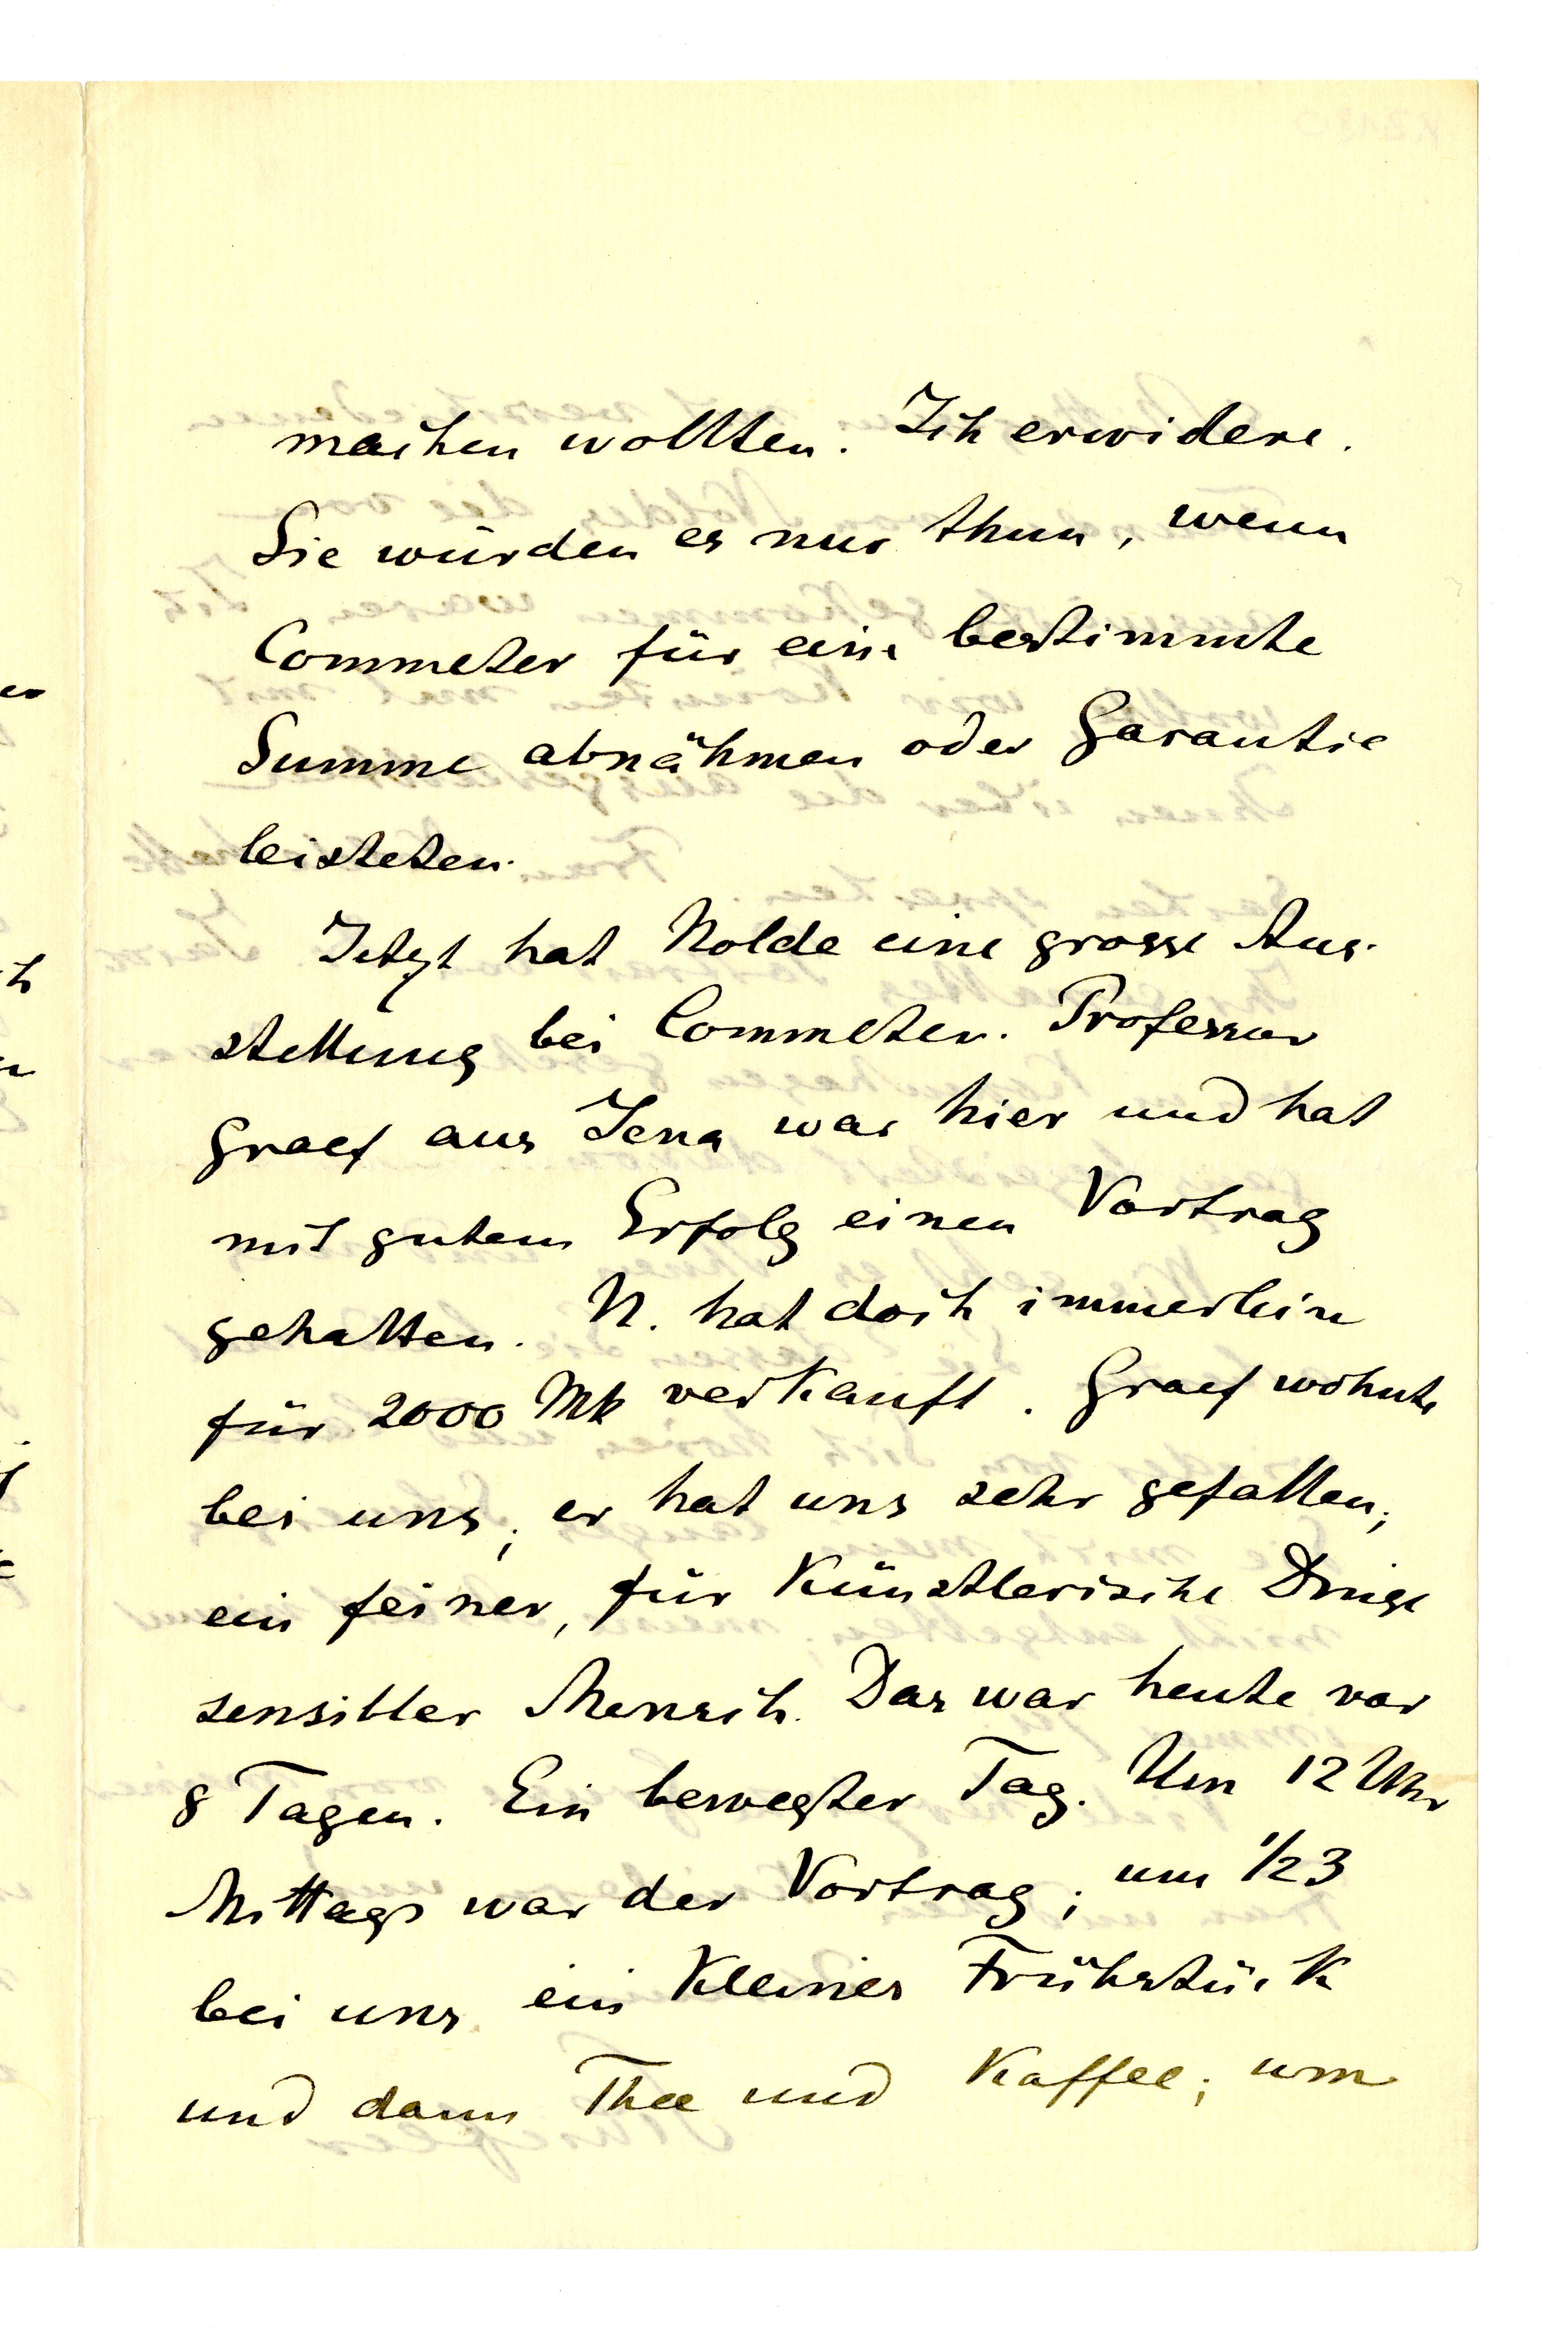 machen wollten. Ich erwidere.
Sie würden es nur thun, wenn
Commeter für eine bestimmte
Summe abnähmen oder Garantie
leisteten.
Jetzt hat Nolde eine grosse Aus-
stellung bei Commeter. Professor
Graef aus Jena war hier und hat
mit gutem Erfolg einen Vortrag
gehalten. N. hat doch immerhin
für 2000 Mk verkauft. Graef wohnte
bei uns; er hat uns sehr gefallen;
ein feiner, für künstlerische Dinge
sensibler Mensch. Das war heute vor
8 Tagen. Ein bewegter Tag. Um 12 Uhr
Mittags war der Vortrag; um 1/23
bei uns ein kleines Frühstück
und dann Thee und Kaffee; um